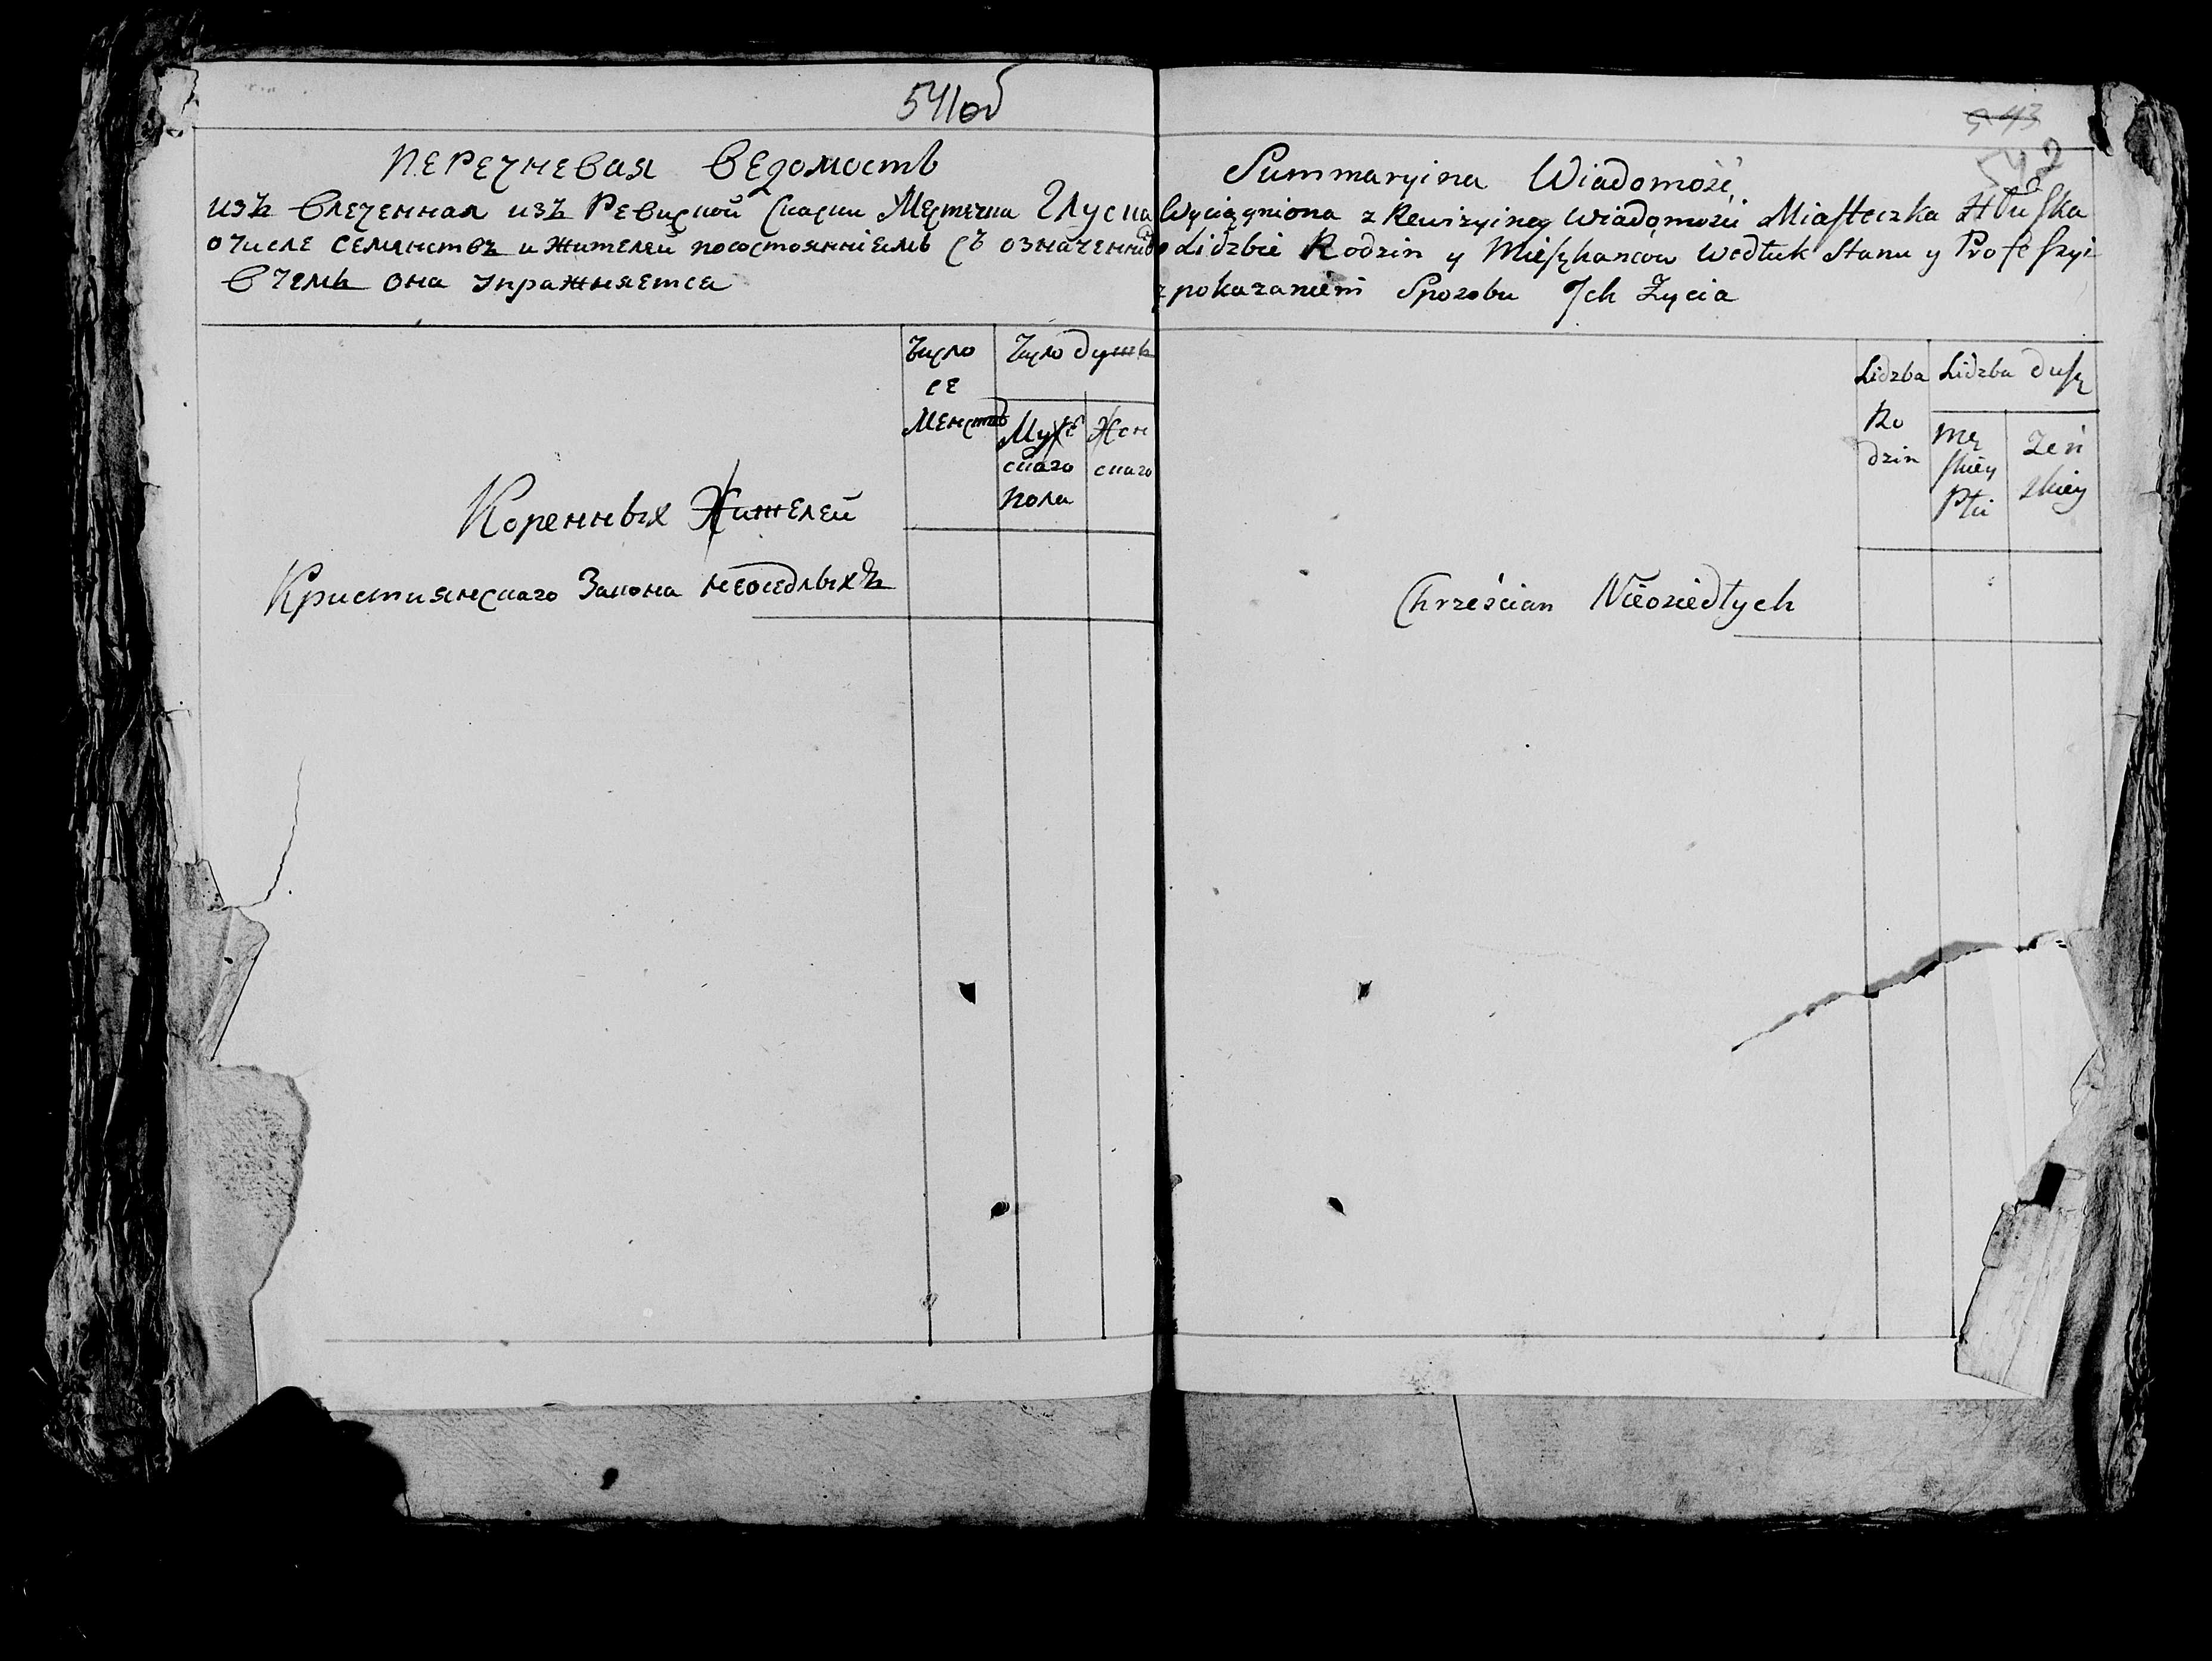 541об
Перечневая ведомость
изъ влеченная изъ Ревиской Скаски Местечка Глуска
о числе семянствъ и жителей по состояніемъ съ означенніемъ
в чемъ она упражняется
Число
се
менствъ
Число душъ
Муже
скаго
пола
Жен
скаго
Коренных Жителей
Кристиянскаго Закона неоседлыхъ
543
542
Summaryina Wiadomość
Wyciągniona z Rewizyiney Wiadomości Miasteczka Hłuska
o Lidzbie Rodzin y Mieszkancow Wedłuk Stanu y Professyi
z pokazaniem Sposobu Ich Życia
Lidzba
Ro
dzin
Lidzba dusz
Mę
skiey
Płci
Żeń
skiey
Chrześcian Nieosiedłych